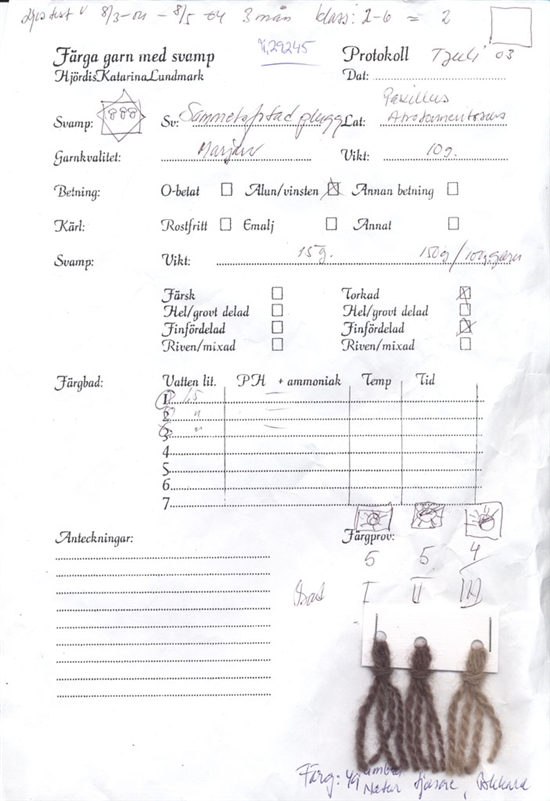 8/3-04 - 8/5 -04 3 mån klass: 2-6 = 2
V,29245
Färga garn med svamp Protokoll Juli 03
HjördisKatarinaLundmark Dat:
Paxillus
Svamp: Sv: Sammetsfotad plugg Lat: Atrotomentosus
Garnkvalitet: Vikt: 10g.
Betning: O-betat Alun/vinsten Annan betning
Kärl: Rostfritt Emalj Annat
Svamp: Vikt: 15g. 150g/100g garn
Färsk Torkad
Hel/grovt delad Hel/grovt delad
Finfördelad Finfördelad
Riven/mixad Riven/mixad
Färgbad: Vatten lit. PH + ammoniak Temp Tid
1 1,5
2 "
3 "
4
5
6
7
Anteckningar: Färgprov:
5 5 4
Bad I II III
Färg: umbra
Natur